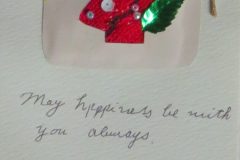 May happiness be with
you always.